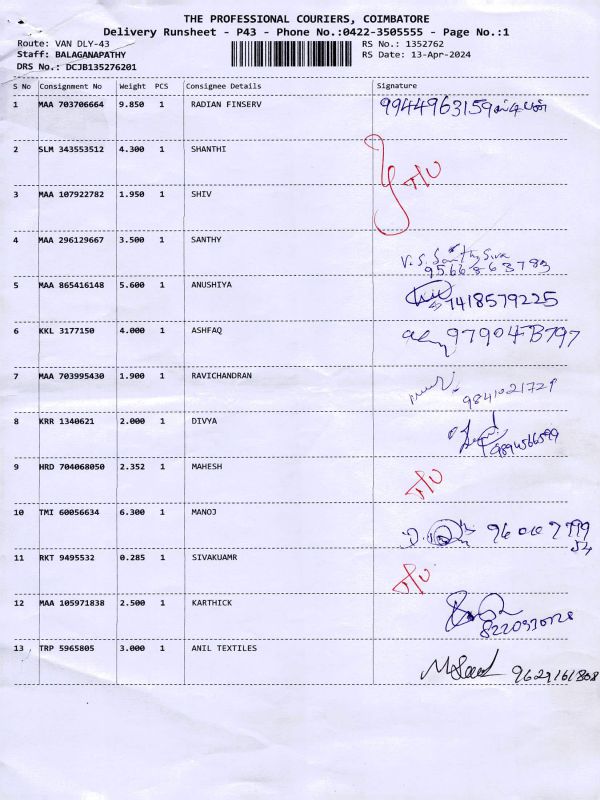 THE PROFESSIONAL COURIERS, COIMBATORE
Delivery Runsheet - P43 - Phone No.:0422-3505555 - Page No.:1
Route: VAN DLY-43 RS No.: 1352762
Staff: BALAGANAPATHY RS Date: 13-Apr-2024
DRS No.: DCJB135276201
S No Consignment No Weight PCS Consignee Details Signature
1 MAA 703706664 9.850 1 RADIAN FINSERV 9944963159
2 SLM 343553512 4.300 1 SHANTHI
3 MAA 107922782 1.950 1 SHIV
4 MAA 296129667 3.500 1 SANTHY 9566863783
5 MAA 865416148 5.600 1 ANUSHIYA 7418579225
6 KKL 3177150 4.000 1 ASHFAQ
7 MAA 703995430 1.900 1 RAVICHANDRAN 9841021721
8 KRR 1340621 2.000 1 DIVYA 9894566599
9 HRD 704068050 2.352 1 MAHESH
10 TMI 60056634 6.300 1 MANOJ
11 RKT 9495532 0.285 1 SIVAKUAMR
12 MAA 105971838 2.500 1 KARTHICK
13 TRP 5965805 3.000 1 ANIL TEXTILES 9629161808